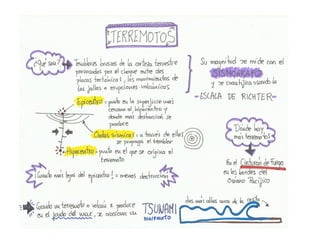 TERREMOTOS
¿Qué son?
Temblores bruscos de la corteza terrestre
provocados por el choque entre dos
placas tectónicas, los movimientos de
las fallas o erupciones volcánicas
Epicentro = punto en la superficie más
cercano al hipocentro y
donde más destrucción se
produce
Ondas sísmicas = a través de ellas
se propaga el temblor
Hipocentro = punto en el que se origina el
terremoto
¡Cuanto más lejos del epicentro! = menos destrucción
Su magnitud se mide con el
SISMÓGRAFO
y se cuantifica usando la
- ESCALA DE RICHTER -
Dónde hay
más terremotos
En el Cinturón de Fuego
en los bordes del
Océano Pacífico
Cuando un terremoto o volcán se produce
en el fondo del mar, se ocasiona un
TSUNAMI
MAREMOTO
olas más altas cerca de la costa